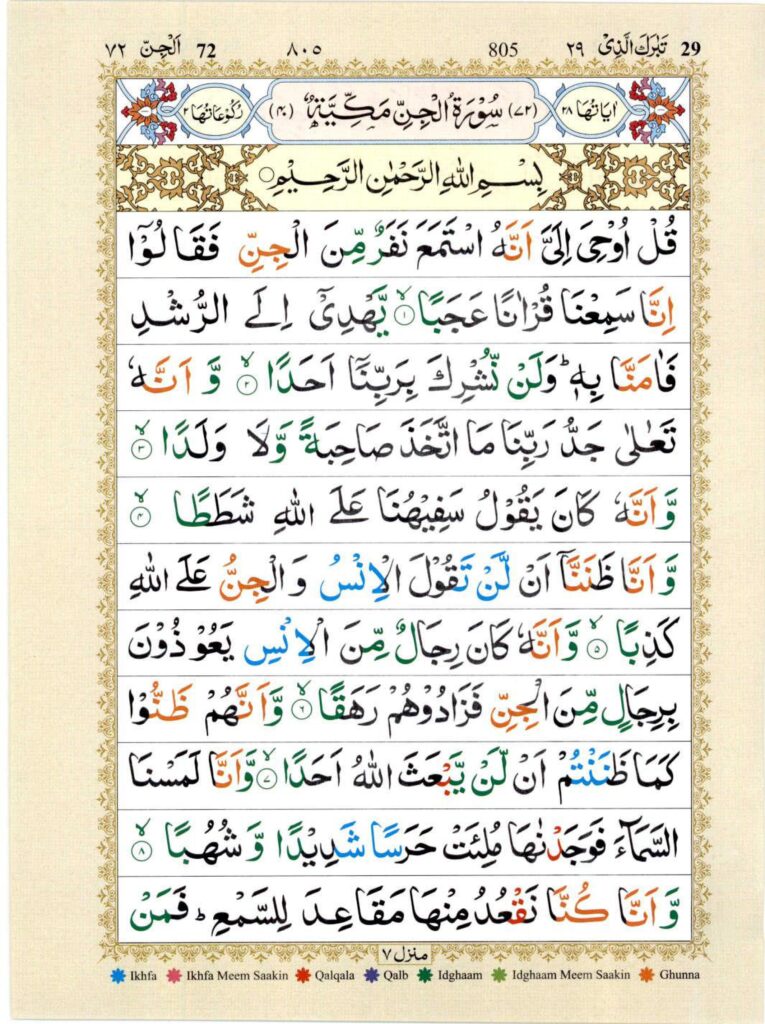 29 تَبٰرَكَ الَّذِىْ ٢٩ 805 ٨٠٥ 72 اَلْجِنّ ٧٢
اٰيَاتُهَا ٢٨ (٧٢) سُوْرَةُ الْجِنِّ مَكِّيَّةٌ (٤٠) رُكُوْعَاتُهَا ٢
بِسْمِ اللّٰهِ الرَّحْمٰنِ الرَّحِيْمِ
قُلْ اُوْحِىَ اِلَىَّ اَنَّهُ اسْتَمَعَ نَفَرٌ مِّنَ الْجِنِّ فَقَالُوْٓا
اِنَّا سَمِعْنَا قُرْاٰنًا عَجَبًا ۙ١ يَّهْدِىْٓ اِلَى الرُّشْدِ
فَاٰمَنَّا بِهٖ ؕ وَلَنْ نُّشْرِكَ بِرَبِّنَاۤ اَحَدًا ۙ٢ وَّ اَنَّهٗ
تَعٰلٰى جَدُّ رَبِّنَا مَا اتَّخَذَ صَاحِبَةً وَّلَا وَلَدًا ۙ٣
وَّاَنَّهٗ كَانَ يَقُوْلُ سَفِيْهُنَا عَلَى اللّٰهِ شَطَطًا ۙ٤
وَّاَنَّا ظَنَنَّاۤ اَنْ لَّنْ تَقُوْلَ الْاِنْسُ وَ الْجِنُّ عَلَى اللّٰهِ
كَذِبًا ۙ٥ وَّاَنَّهٗ كَانَ رِجَالٌ مِّنَ الْاِنْسِ يَعُوْذُوْنَ
بِرِجَالٍ مِّنَ الْجِنِّ فَزَادُوْهُمْ رَهَقًا ۙ٦ وَّاَنَّهُمْ ظَنُّوْا
كَمَا ظَنَنْتُمْ اَنْ لَّنْ يَّبْعَثَ اللّٰهُ اَحَدًا ۙ٧ وَّاَنَّا لَمَسْنَا
السَّمَآءَ فَوَجَدْنٰهَا مُلِئَتْ حَرَسًا شَدِيْدًا وَّ شُهُبًا ۙ٨
وَّ اَنَّا كُنَّا نَقْعُدُ مِنْهَا مَقَاعِدَ لِلسَّمْعِ ؕ فَمَنْ
منزل ٧
Ikhfa Ikhfa Meem Saakin Qalqala Qalb Idghaam Idghaam Meem Saakin Ghunna